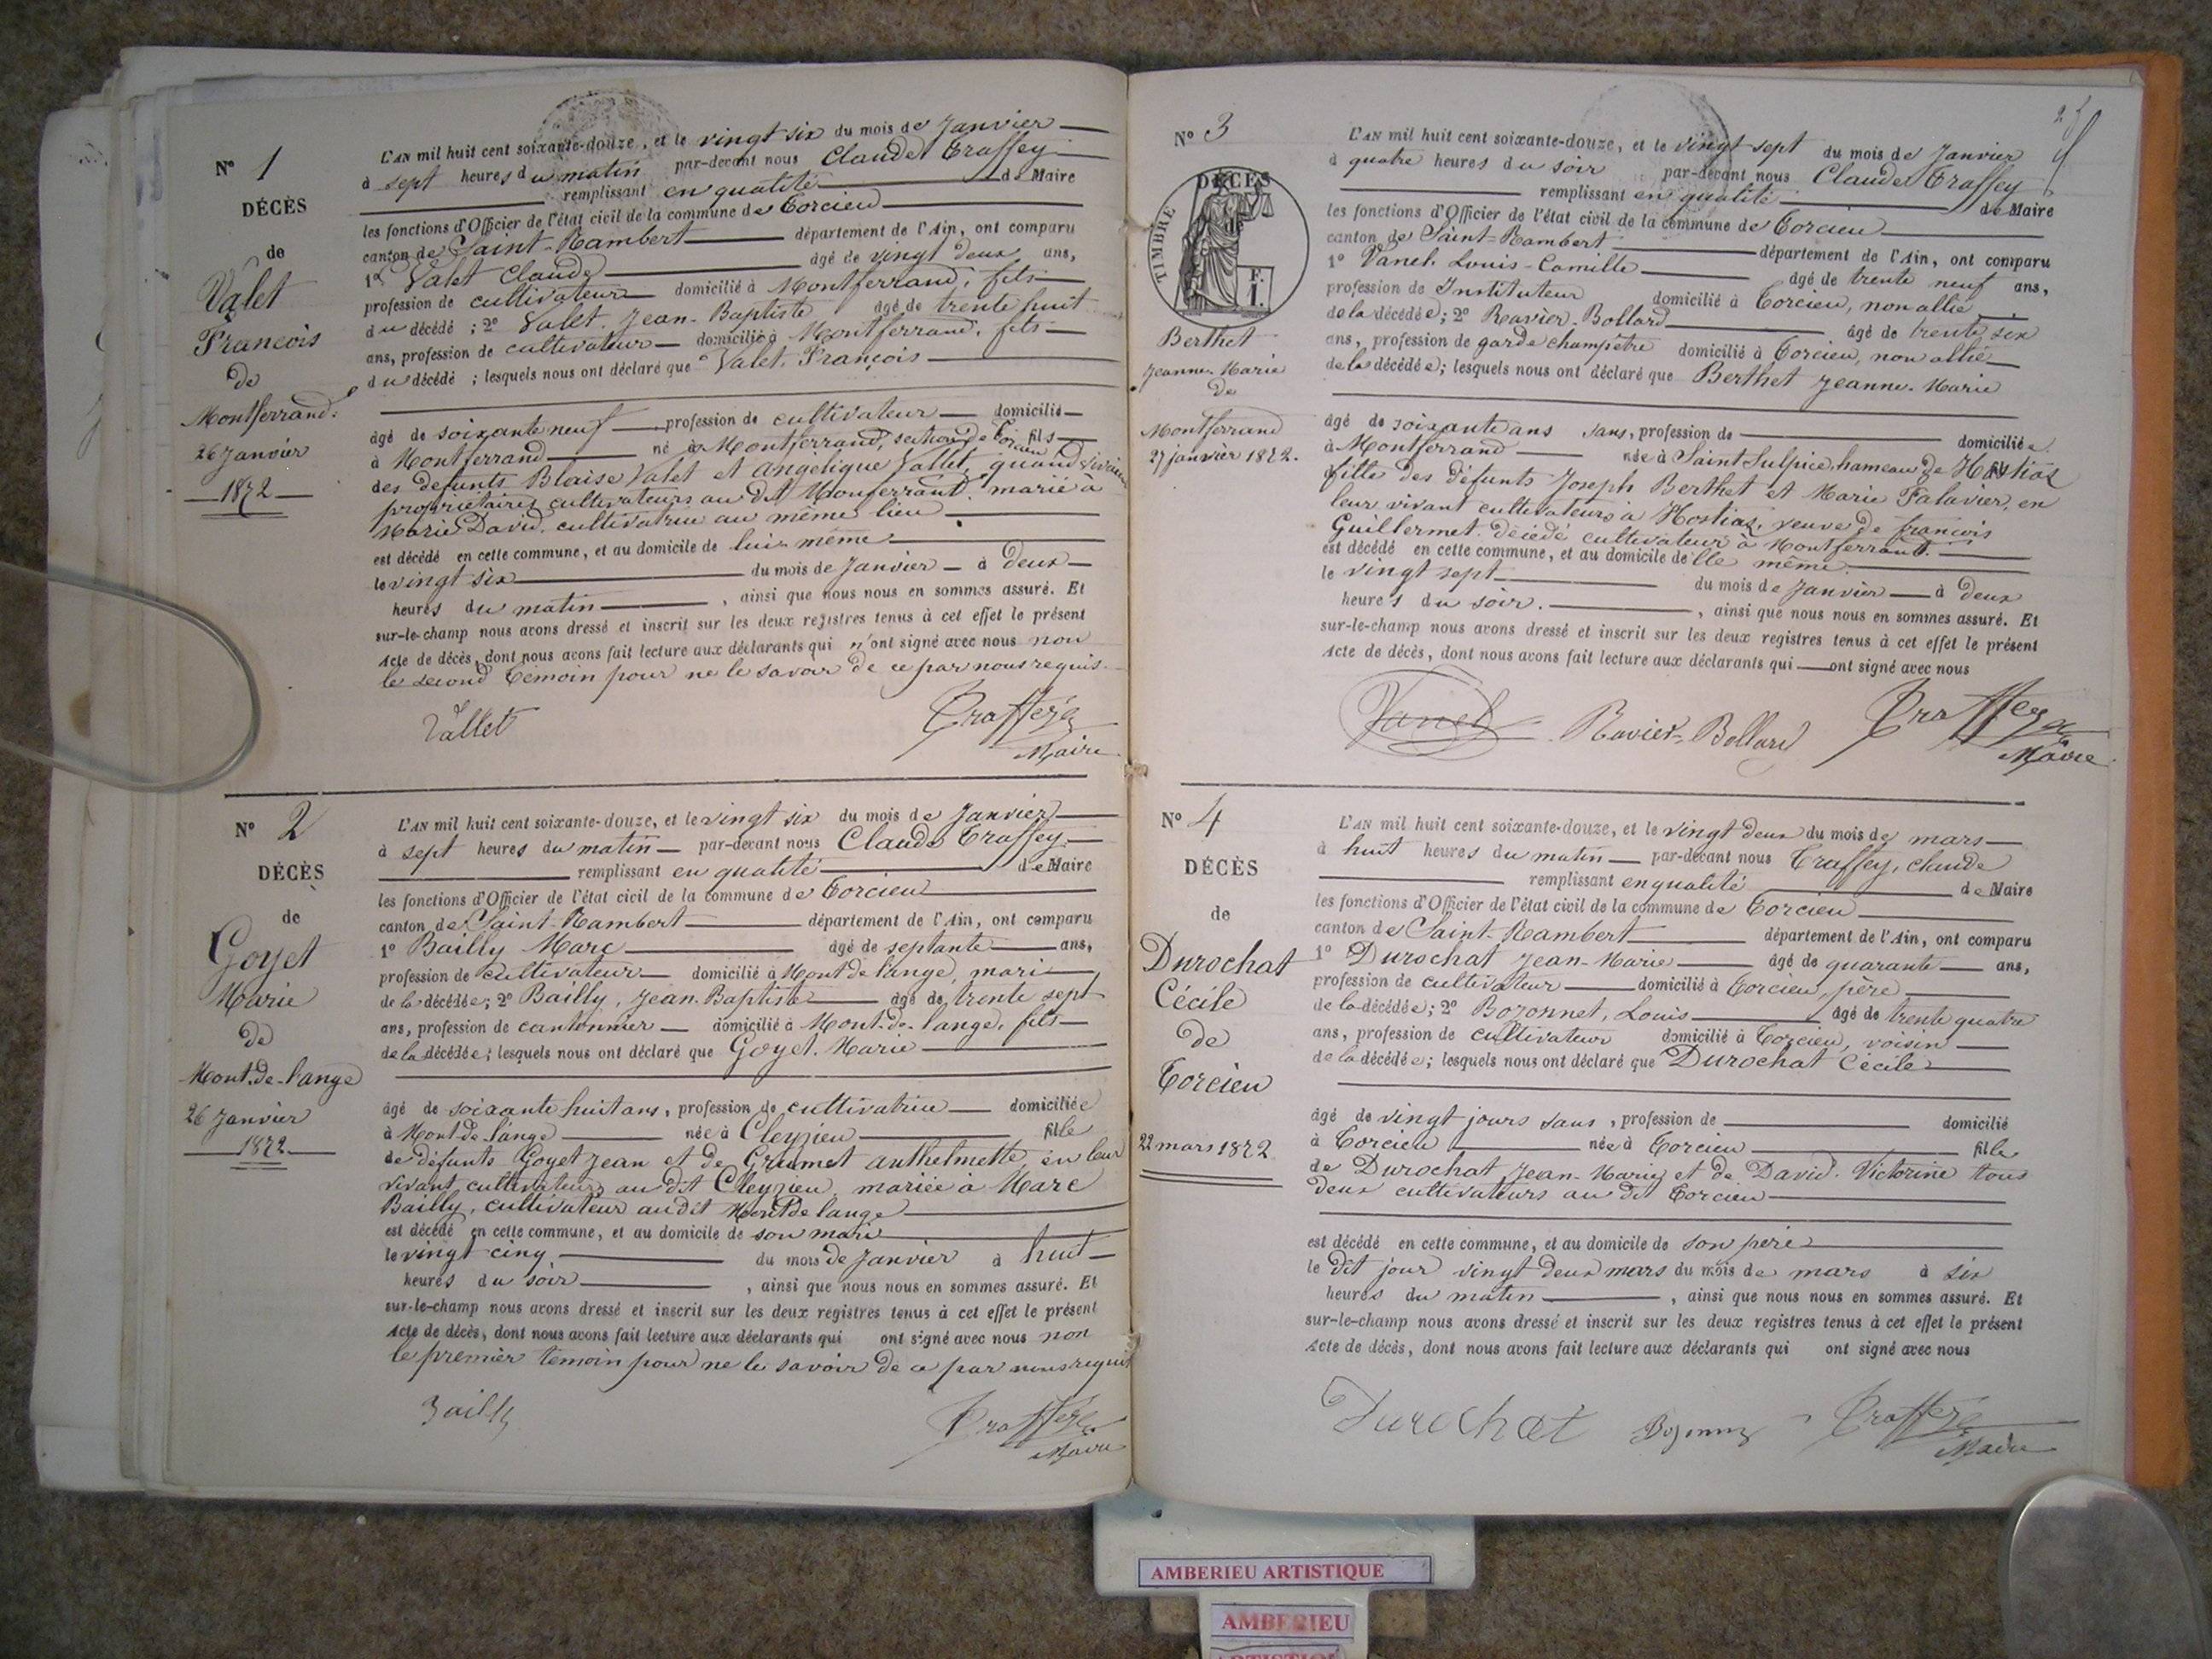 N° 1
DÉCÈS
de
Valet
François
de
Montferrand.
26 Janvier
1872
L'AN mil huit cent soixante-douze, et le vingt six du mois de Janvier
à sept heures du matin par-devant nous Claude Traffey
remplissant en qualité de Maire
les fonctions d'Officier de l'état civil de la commune de Torcieu
canton de Saint-Rambert département de l'Ain, ont comparu
1° Valet Claude âgé de vingt deux ans,
profession de cultivateur domicilié à Montferrand, fils
du décédé ; 2° Valet, Jean-Baptiste âgé de trente huit
ans, profession de cultivateur domicilié à Montferrand, fils
du décédé ; lesquels nous ont déclaré que Valet, François
âgé de soixante neuf profession de cultivateur domicilié
à Montferrand né à Montferrand, section de Torcieu fils
des défunts Blaise Valet et Angélique Vallet, quand vivaient
propriétaires cultivateurs au dit Montferrand. marié à
Marie David, cultivatrice au même lieu
est décédé en cette commune, et au domicile de lui même
le vingt six du mois de Janvier à Deux
heures du matin , ainsi que nous nous en sommes assuré. Et
sur-le-champ nous avons dressé et inscrit sur les deux registres tenus à cet effet le présent
Acte de décès, dont nous avons fait lecture aux déclarants qui n'ont signé avec nous non
le second témoin pour ne le savoir de ce par nous requis.
Vallet Traffey
Maire
N° 2
DÉCÈS
de
Goyet
Marie
de
Mont-de-lange
26 Janvier
1872
L'AN mil huit cent soixante-douze, et le vingt six du mois de Janvier
à sept heures du matin par-devant nous Claude Traffey
remplissant en qualité de Maire
les fonctions d'Officier de l'état civil de la commune de Torcieu
canton de Saint-Rambert département de l'Ain, ont comparu
1° Bailly Marc âgé de septante ans,
profession de cultivateur domicilié à Mont de lange, mari
de la décédée; 2° Bailly, Jean-Baptiste âgé de trente sept
ans, profession de cantonnier domicilié à Mont-de-lange, fils
de la décédée; lesquels nous ont déclaré que Goyet. Marie
âgé de soixante huit ans, profession de cultivatrice domiciliée
à Mont de lange née à Cleyzieu fille
de défunts Goyet Jean et de Grumet Anthelmette en leur
vivant cultivateurs au dit Cleyzieu mariée à Marc
Bailly, cultivateur au dit Mont de lange
est décédé en cette commune, et au domicile de son mari
le vingt cinq du mois de Janvier à huit
heures du soir , ainsi que nous nous en sommes assuré. Et
sur-le-champ nous avons dressé et inscrit sur les deux registres tenus à cet effet le présent
Acte de décès, dont nous avons fait lecture aux déclarants qui ont signé avec nous non
le premier témoin pour ne le savoir de ce par nous requis
Bailly Traffey
Maire
N° 3
DÉCÈS
TIMBRE
F.
1.
Berthet
Jeanne-Marie
de
Montferrand
27 janvier 1872.
L'AN mil huit cent soixante-douze, et le vingt sept du mois de Janvier
à quatre heures du soir par-devant nous Claude Traffey
remplissant en qualité de Maire
les fonctions d'Officier de l'état civil de la commune de Torcieu
canton de Saint-Rambert département de l'Ain, ont comparu
1° Vanel. Louis-Camille âgé de trente neuf ans,
profession de Instituteur domicilié à Torcieu, non allié
de la décédée; 2° Ravier-Bollard âgé de trente six
ans, profession de garde champêtre domicilié à Torcieu, non allié
de la décédée; lesquels nous ont déclaré que Berthet Jeanne-Marie
âgé de soixante ans sans, profession de domiciliée
à Montferrand née à Saint Sulpice, hameau de Hostiaz
fille des défunts Joseph Berthet et Marie Falavier, en
leur vivant cultivateurs à Hostiaz, veuve de françois
Guillermet décédé cultivateur à Montferrand.
est décédé en cette commune, et au domicile de elle même
le vingt sept du mois de Janvier à deux
heures du soir. , ainsi que nous nous en sommes assuré. Et
sur-le-champ nous avons dressé et inscrit sur les deux registres tenus à cet effet le présent
Acte de décès, dont nous avons fait lecture aux déclarants qui ont signé avec nous
Vanel Ravier-Bollard Traffey
Maire
N° 4
DÉCÈS
de
Durochat
Cécile
de
Torcieu
22 mars 1872
L'AN mil huit cent soixante-douze, et le vingt deux du mois de mars
à huit heures du matin par-devant nous Traffey, Claude
remplissant en qualité de Maire
les fonctions d'Officier de l'état civil de la commune de Torcieu
canton de Saint-Rambert département de l'Ain, ont comparu
1° Durochat Jean-Marie âgé de quarante ans,
profession de cultivateur domicilié à Torcieu, père
de la décédée; 2° Bozonnet, Louis âgé de trente quatre
ans, profession de cultivateur domicilié à Torcieu, voisin
de la décédée; lesquels nous ont déclaré que Durochat Cécile
âgé de vingt jours sans, profession de domicilié
à Torcieu née à Torcieu fille
de Durochat Jean-Marie et de David. Victorine tous
deux cultivateurs au dit Torcieu
est décédé en cette commune, et au domicile de son père
le dit jour vingt deux mars du mois de mars à six
heures du matin , ainsi que nous nous en sommes assuré. Et
sur-le-champ nous avons dressé et inscrit sur les deux registres tenus à cet effet le présent
Acte de décès, dont nous avons fait lecture aux déclarants qui ont signé avec nous
Durochat Bozonnet Traffey
Maire
AMBERIEU ARTISTIQUE
AMBERIEU
ARTISTIQUE